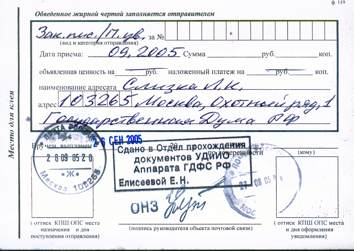 ф 119
Обведенное жирной чертой заполняется отправителем
Зак. пис./1 ув., за №
(вид и категория отправления)
Дата приема: 09.2005 Сумма руб. коп.
объявленная ценность на руб. наложенный платеж на руб. коп.
наименование адресата Слизка Л.К.
адрес 103265, Москва, Охотный ряд, 1
Государственная Дума РФ
Место для клея
26 СЕН 2005
28 09 05 20
Москва 103265
Сдано в Отдел прохождения
документов УДИиО
Аппарата ГДФС РФ
Елисеевой Е.Н.
ОНЗ
( оттиск КПШ ОПС места
назначения и дня
поступления отправления)
(подпись руководителя объекта почтовой связи)
( оттиск КПШ ОПС места
и дня оформления
уведомления)